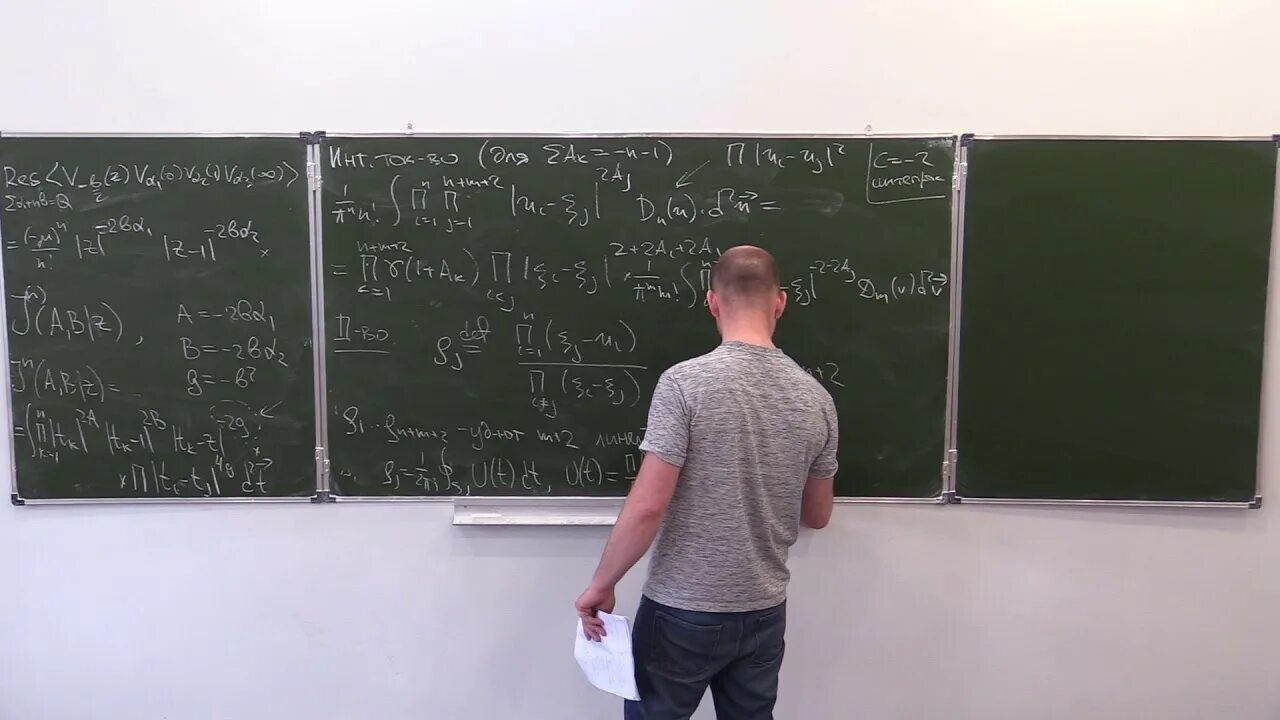 Res⟨V_{-b/2}(z) V_{α₁}(0) V_{α₂}(1) V_{α₃}(∞)⟩
Σα+nb=Q
= (-μ)ⁿ/n! |z|^{-2bα₁} |z-1|^{-2bα₂} ×
J⁽ⁿ⁾(A,B|z), A=-2bα₁
B=-2bα₂
g=-b²
J⁽ⁿ⁾(A,B|z)=
=∫∏_{k=1}^{n} |t_k|^{2A} |t_k-1|^{2B} |t_k-z|^{-2g} ×
×∏|t_i-t_j|^{4g} d²t⃗
Инт. тож-во (для ΣA_k=-n-1) ∏|u_i-u_j|²
1/(πⁿn!) ∫∏_{i=1}^{n} ∏_{j=1}^{n+m+2} |u_i-ξ_j|^{2A_j} D_n(u)·d²u⃗ =
= ∏_{k=1}^{n+m+2} γ(1+A_k) ∏_{i<j} |ξ_i-ξ_j|^{2+2A_i+2A_j} × 1/(π^m m!) ∫∏ -ξ_j|^{-2-2A_j} D_m(v) d²v⃗
Д-во ρ_j =^{def} ∏_{i=1}^{n}(ξ_j-u_i) / ∏_{i≠j}(ξ_i-ξ_j) m+2
ρ₁…ρ_{n+m+2} - уд-ют m+2
ρ_j=1/(2πi) ∮_{ξ_j} U(t)dt, U(t)=∏
C=-2